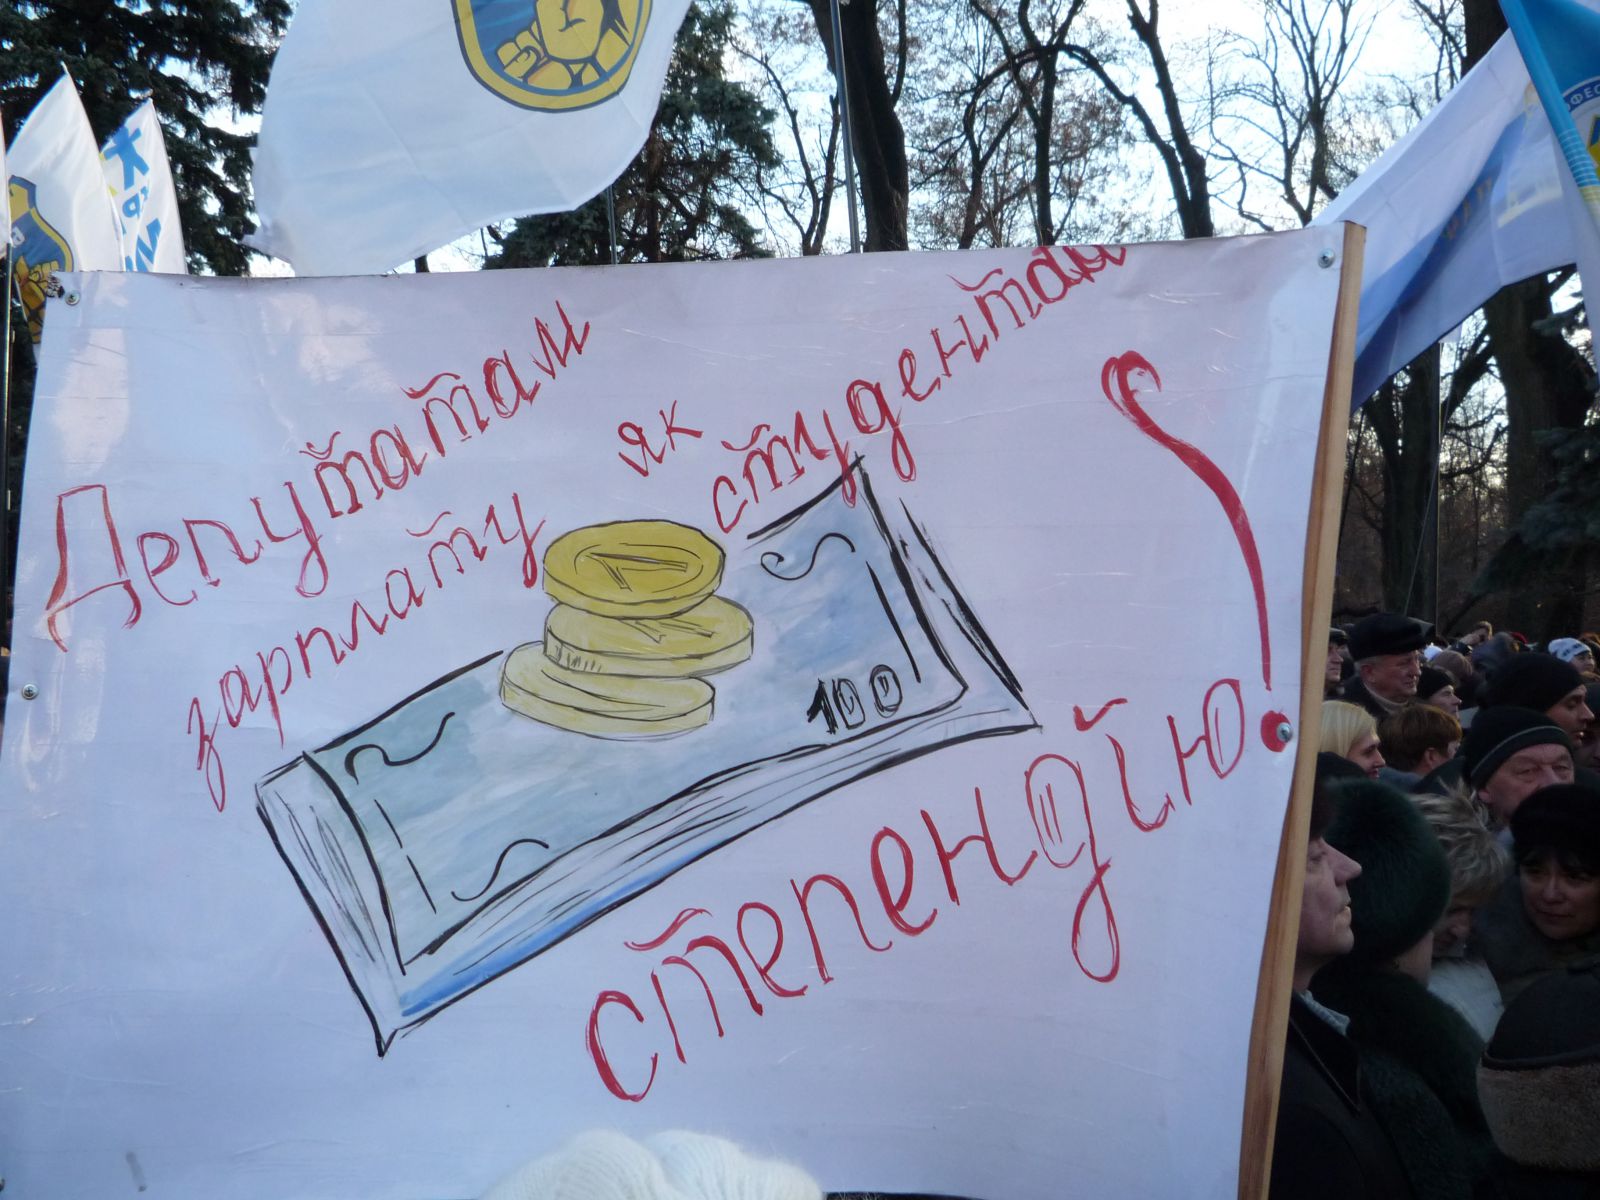 Депутатам
зарплату
як
студентам
степендію!
100